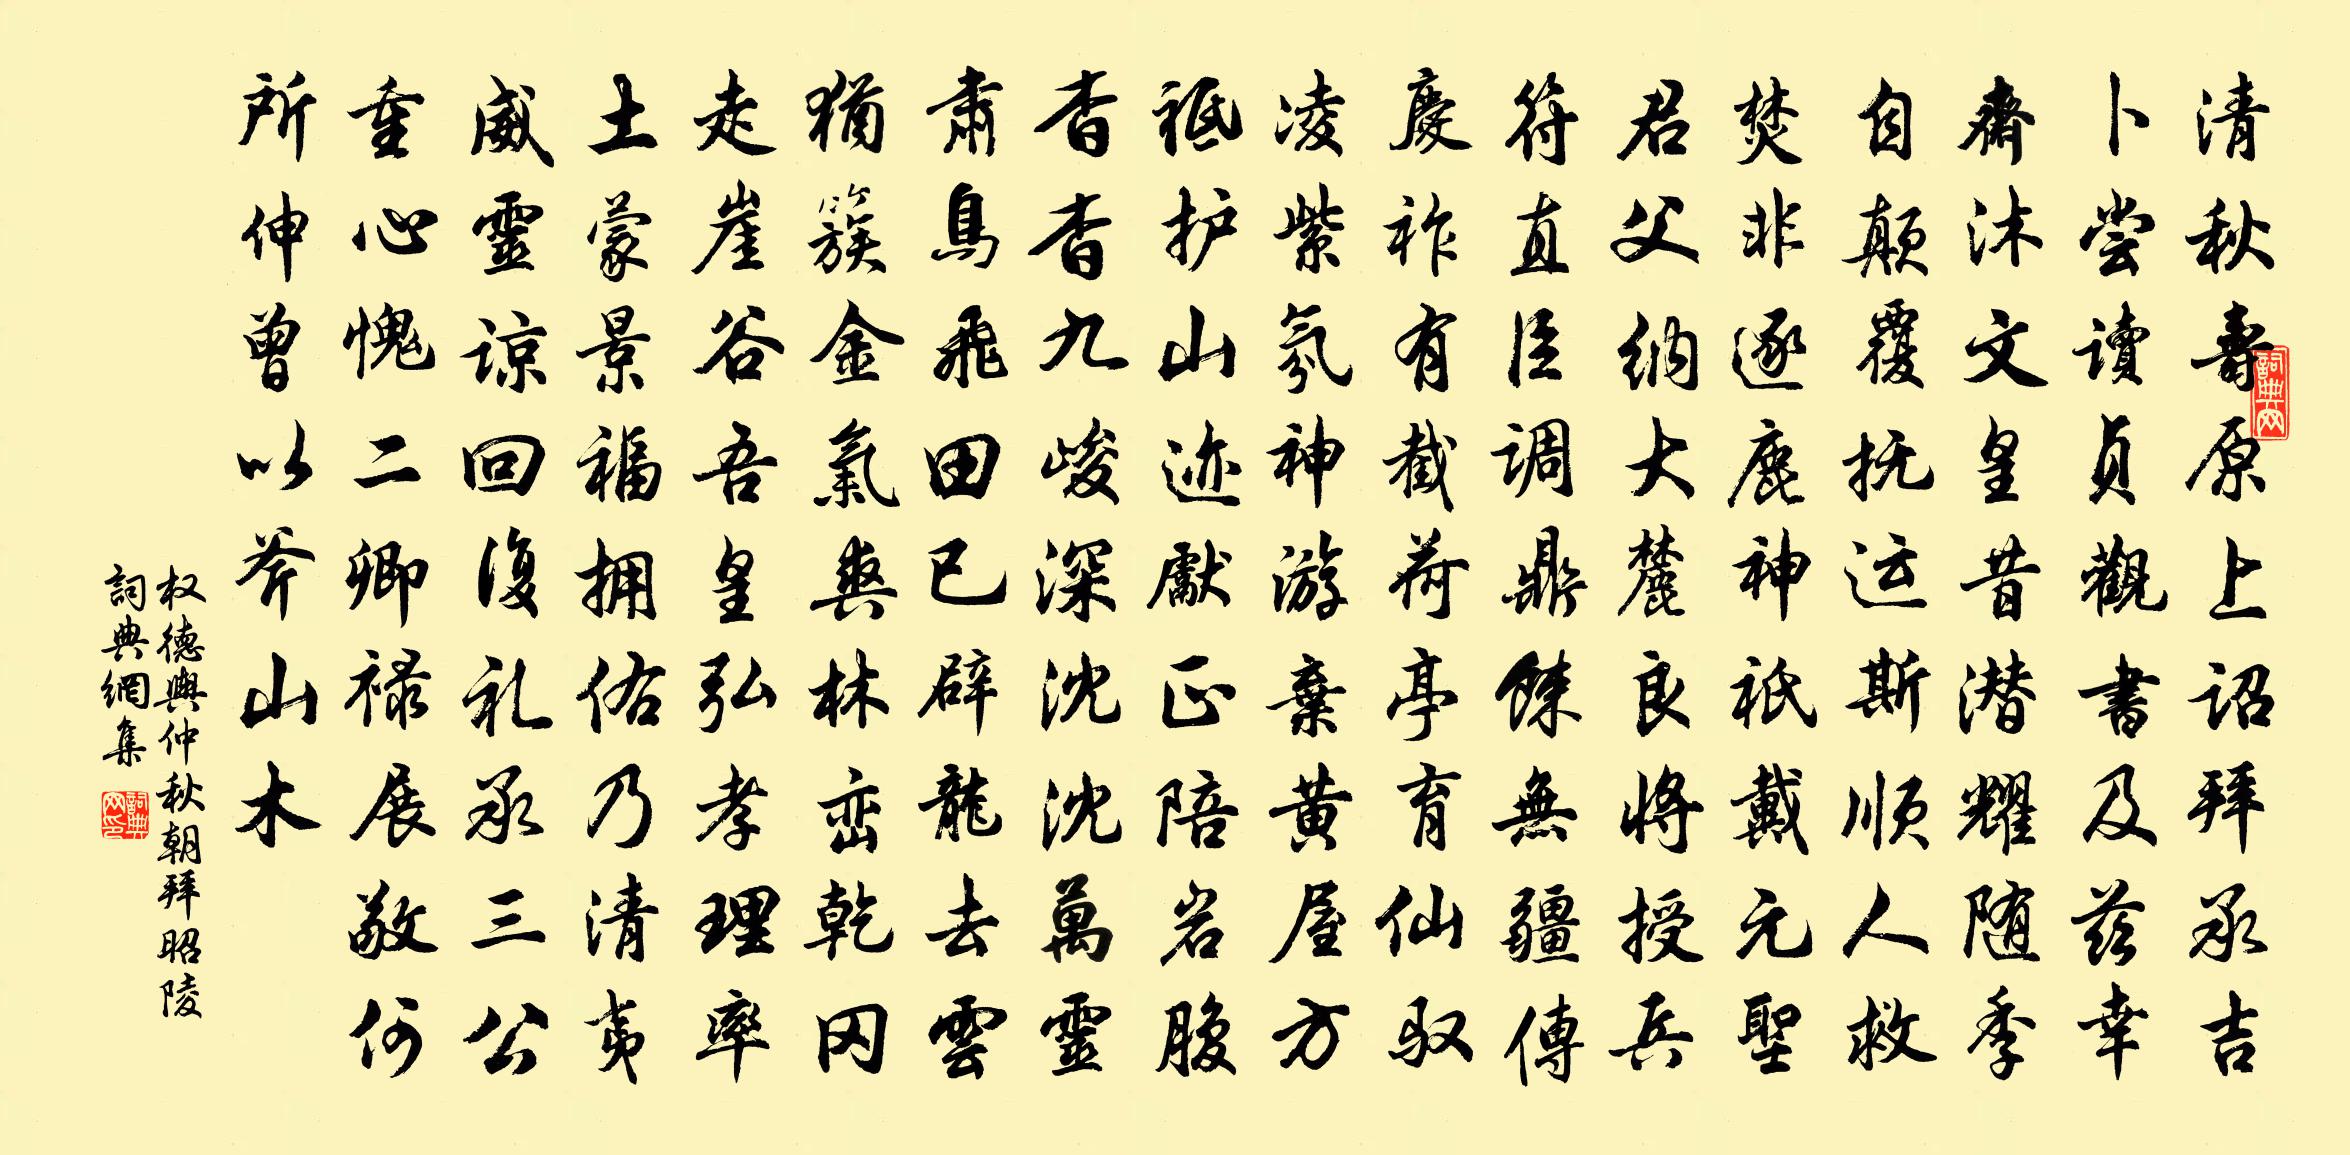 清秋壽原上詔拜承吉
卜尝讀貞觀書及兹幸
齋沐文皇昔潜耀随季
自颠覆抚运斯顺人救
焚非逐鹿神祇戴元聖
君父纳大麓良将授兵
符直臣调鼎餗無疆傳
慶祚有截荷亭育仙驭
凌紫氛神游棄黄屋方
祗护山迹獻正陪岩腹
杳杳九峻深沈沈萬靈
肅鳥飛田已辟龍去雲
猶簇金氣爽林峦乾冈
走崖谷吾皇弘孝理率
土蒙景福拥佑乃清夷
威靈谅回復礼承三公
重心愧二卿禄展敬何
所伸曾以斧山木
权德輿仲秋朝拜昭陵
詞典網集
詞典网
詞典网印